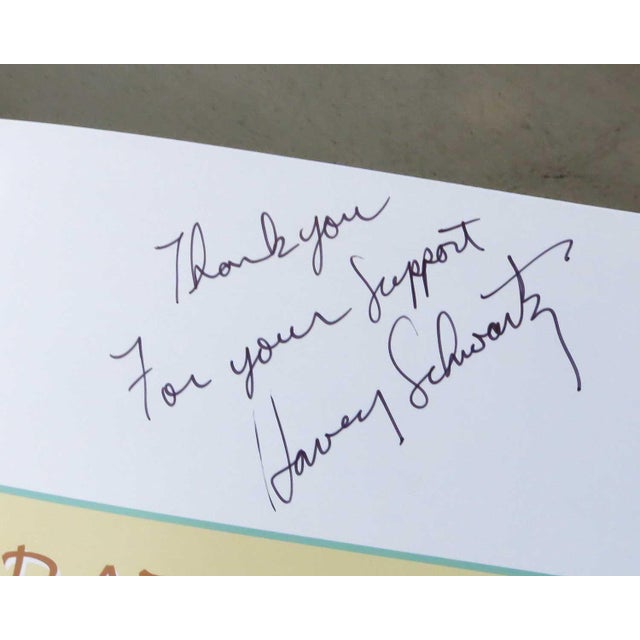 Thank you
For your Support
Harvey Schwartz